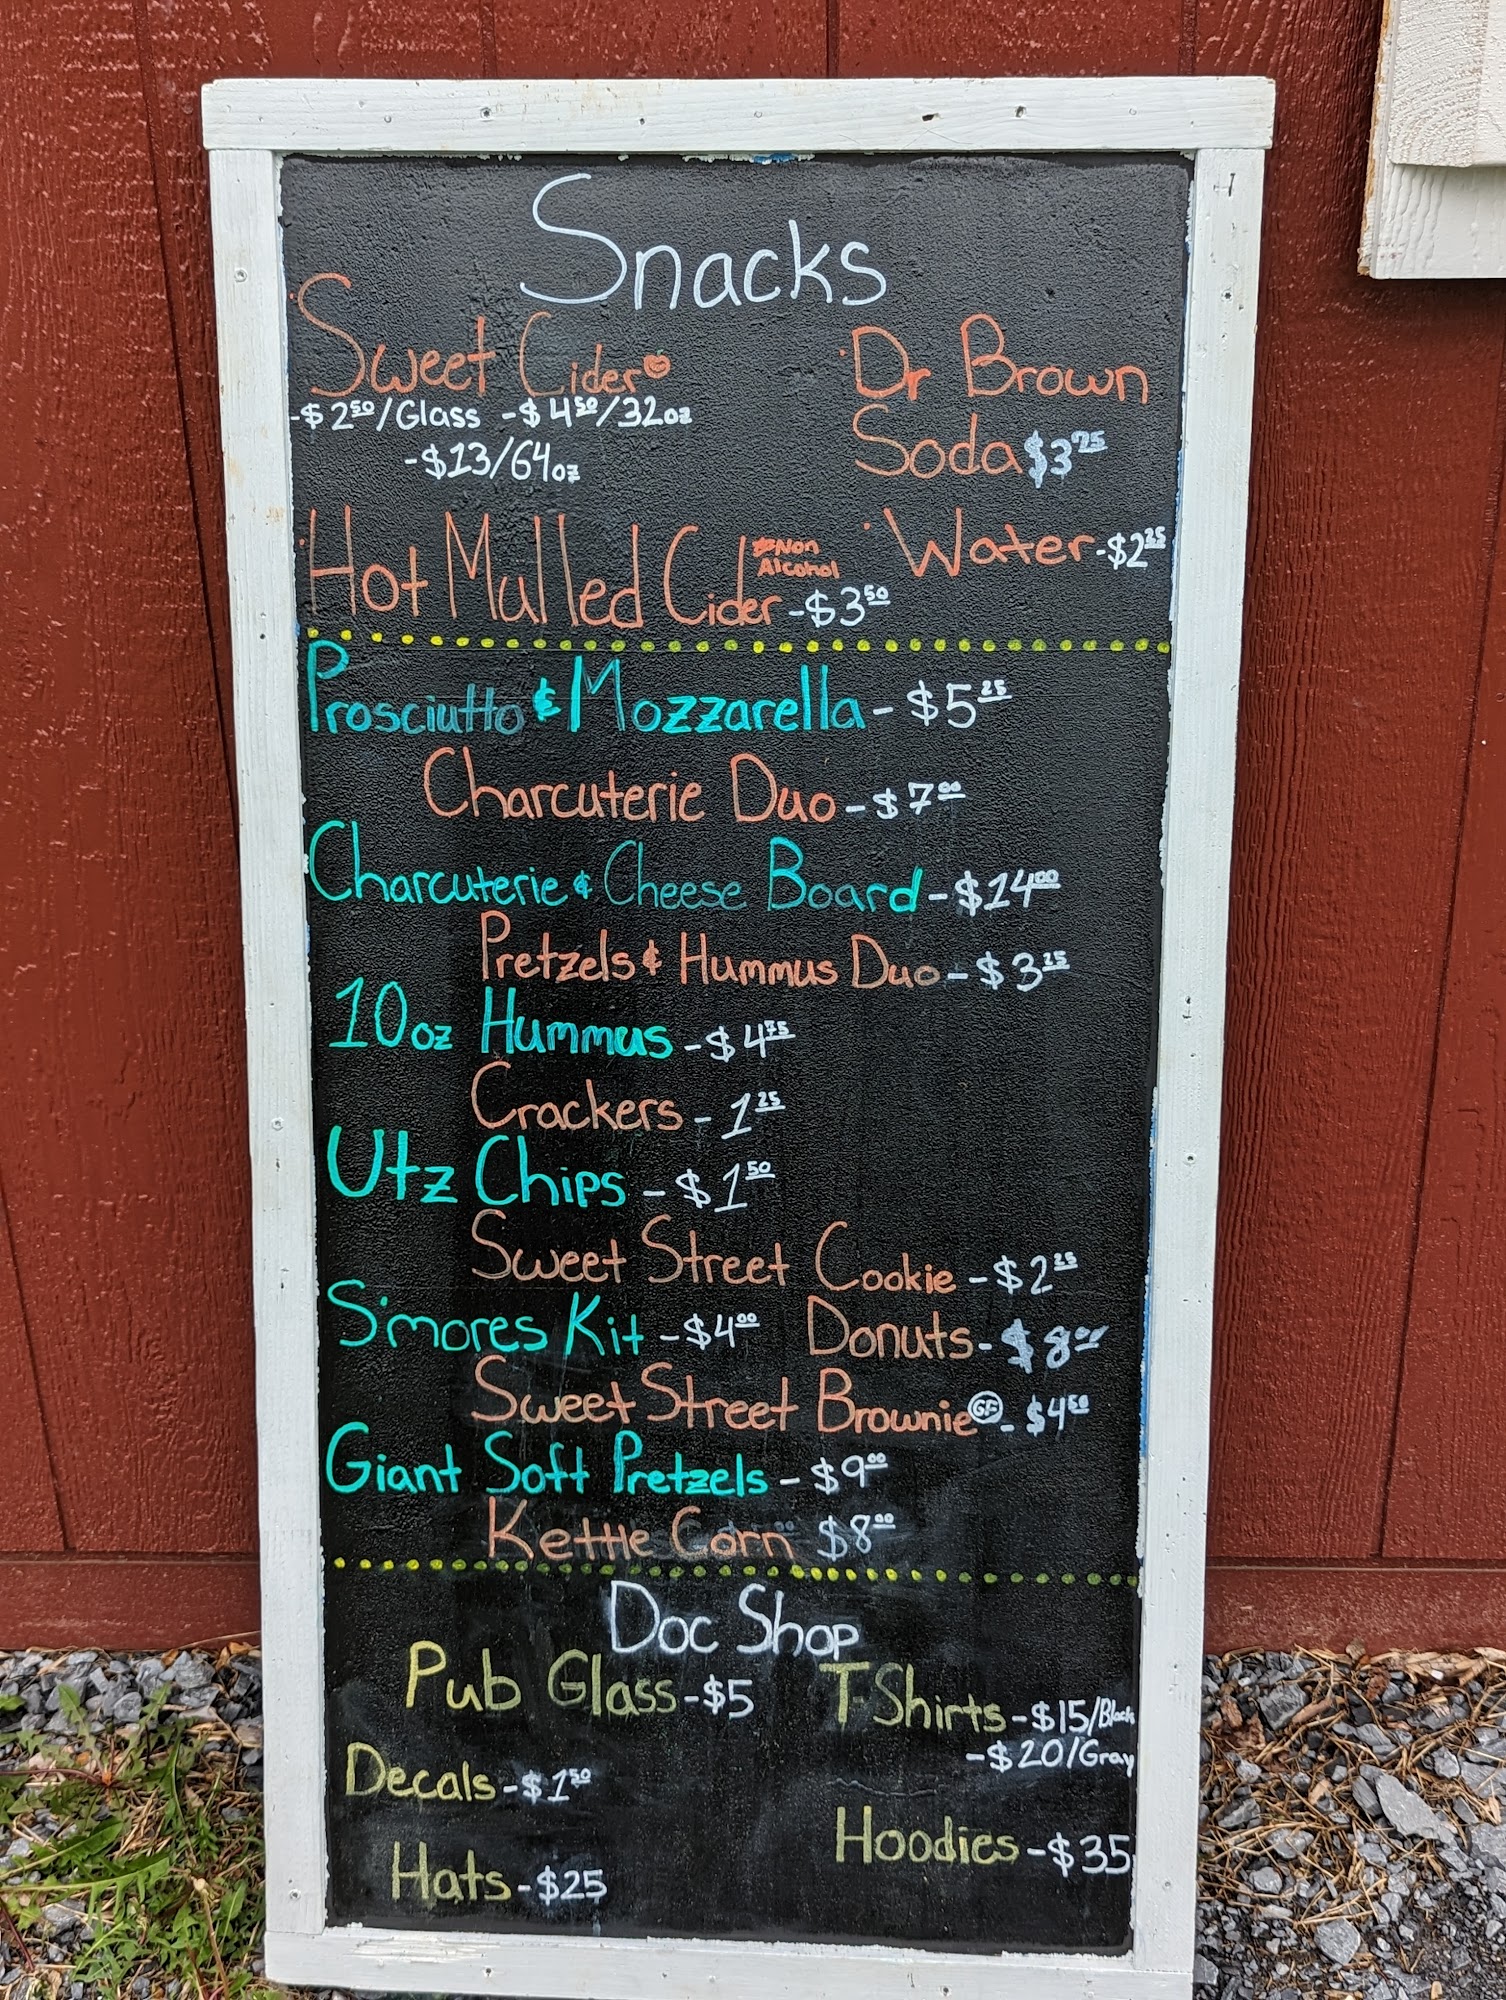 Snacks
Sweet Cider
-$2.50/Glass -$4.50/32oz
-$13/64oz
Dr Brown
Soda $3.25
Hot Mulled Cider -$3.50
*Non
Alcohol
Water -$2.25
Prosciutto & Mozzarella - $5.25
Charcuterie Duo - $7.00
Charcuterie & Cheese Board - $14.00
Pretzels & Hummus Duo - $3.25
10oz Hummus - $4.75
Crackers - 1.25
Utz Chips - $1.50
Sweet Street Cookie - $2.25
S'mores Kit - $4.00 Donuts - $8.00
Sweet Street Brownie GF - $4.50
Giant Soft Pretzels - $9.00
Kettle Corn $8.00
Doc Shop
Pub Glass - $5
T-Shirts - $15/Black
- $20/Gray
Decals - $1.50
Hoodies - $35
Hats - $25